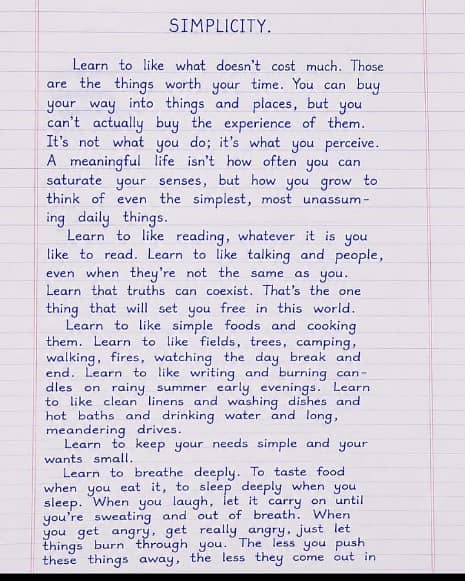 SIMPLICITY.
Learn to like what doesn't cost much. Those
are the things worth your time. You can buy
your way into things and places, but you
can't actually buy the experience of them.
It's not what you do; it's what you perceive.
A meaningful life isn't how often you can
saturate your senses, but how you grow to
think of even the simplest, most unassum-
ing daily things.
Learn to like reading, whatever it is you
like to read. Learn to like talking and people,
even when they're not the same as you.
Learn that truths can coexist. That's the one
thing that will set you free in this world.
Learn to like simple foods and cooking
them. Learn to like fields, trees, camping,
walking, fires, watching the day break and
end. Learn to like writing and burning can-
dles on rainy summer early evenings. Learn
to like clean linens and washing dishes and
hot baths and drinking water and long,
meandering drives.
Learn to keep your needs simple and your
wants small.
Learn to breathe deeply. To taste food
when you eat it, to sleep deeply when you
sleep. When you laugh, let it carry on until
you're sweating and out of breath. When
you get angry, get really angry, just let
things burn through you. The less you push
these things away, the less they come out in